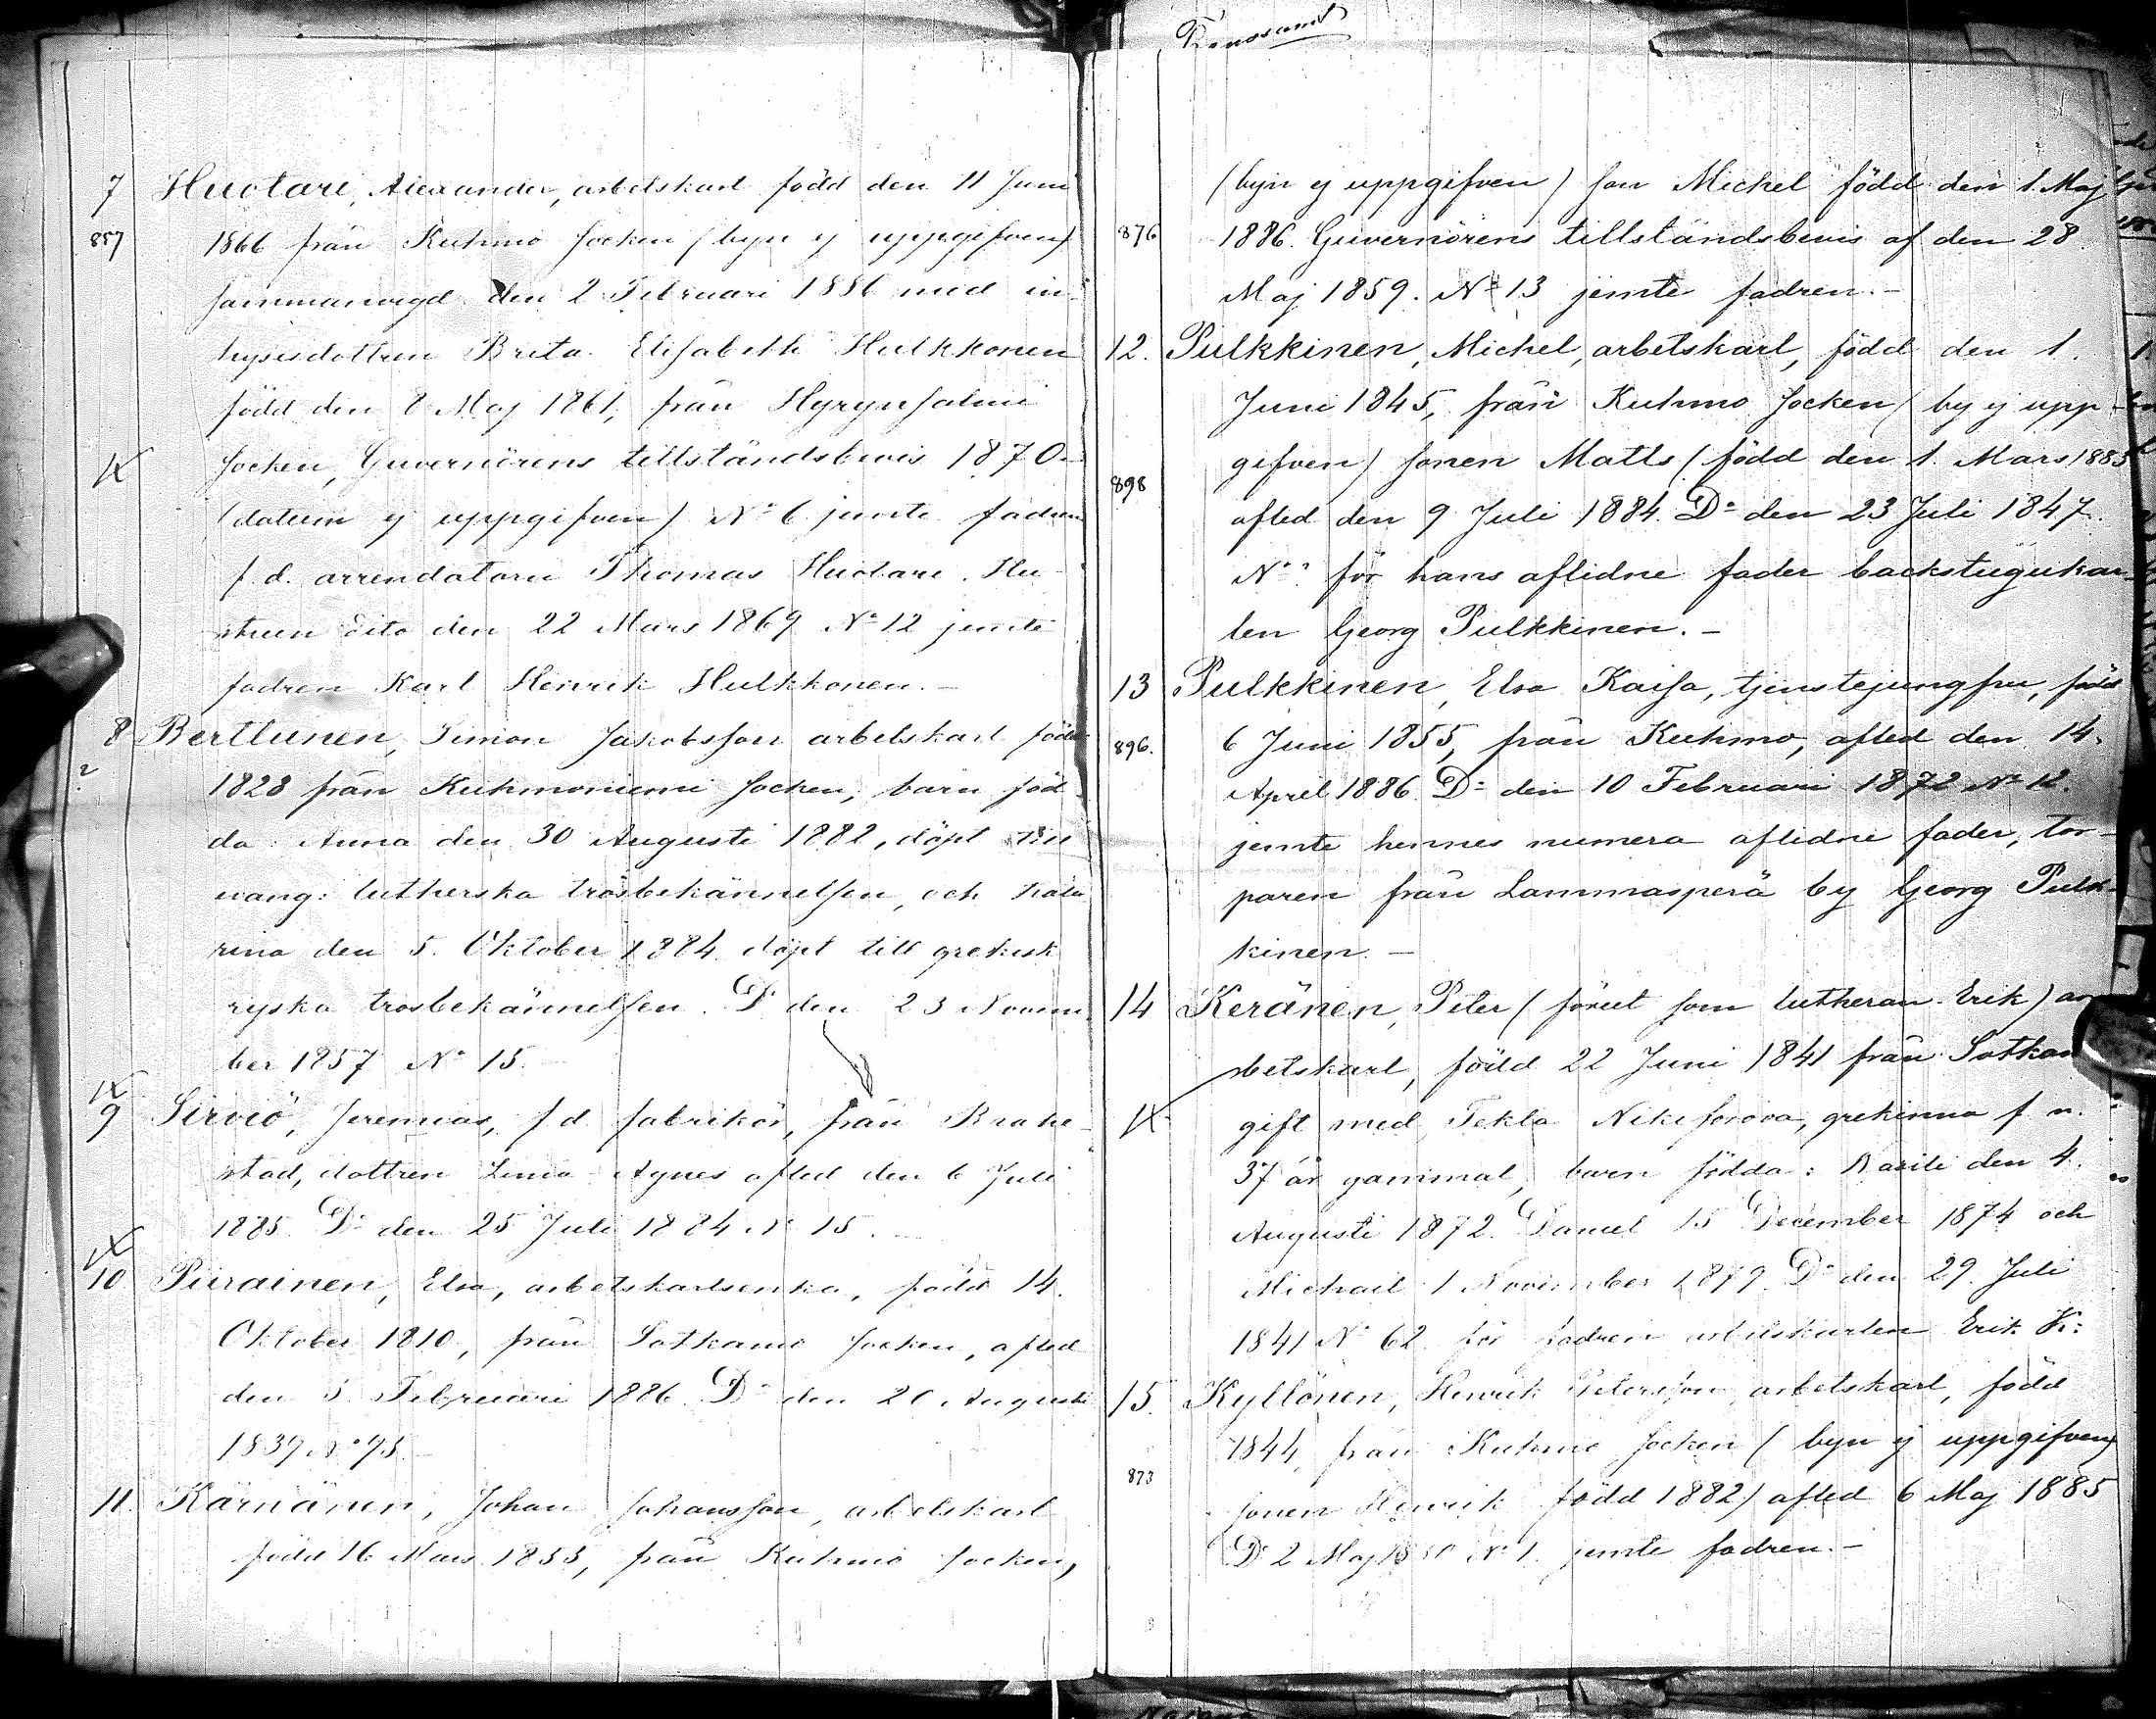 7 Huotari, Alexander, arbetskarl född den 11 Juni
857 1866 från Kuhmo socken (byn ej uppgifven)
sammanvigd den 2 Februari 1886 med in-
hysesdottren Brita Elisabeth Hulkkonen
född den 8 Maj 1861, från Hyrynsalmi
socken, Guvernörens tillståndsbevis 1870
(datum ej uppgifven) No 6 jemte fadren
f.d. arrendatorn Thomas Huotari. Hu-
strun dito den 22 Mars 1869 No 12 jemte
fadren Karl Henrik Hulkkonen.-
8 Berttunen, Simon Jakobsson arbetskarl född
? 1828 från Kuhmoniemi socken, barn föd-
da: Anna den 30 Augusti 1882, döpt till
evang: lutherska trosbekännelsen, och Kata
rina den 5. Oktober 1884 döpt till grekisk
ryska trosbekännelsen. Do den 23 Novem
ber 1857 No 15.
9 Sirviö, Jeremias, f d fabrikör, från Brahe-
stad, dottren Agnes afled den 6 Juli
1885. Do den 25 Juli 1884 No 15.
10 Piirainen, Elsa, arbetskarlsenka, född 14.
Oktober 1810, från Sotkamo socken, afled
den 5 Februari 1886. Do den 20 Augusti
1839 No 73.
11. Kärnänen, Johan Johansson, arbetskarl
född 16 Mars 1855, från Kuhmo socken,
(byn ej uppgifven) son Michel född den 1. Maj
876 1886. Guvernörens tillståndsbevis af den 28
Maj 1859. No 13 jemte fadren.-
12. Pulkkinen, Michel, arbetskarl, född den 1.
Juni 1845, från Kuhmo socken (by ej upp-
gifven) sonen Matts (född den 1. Mars 1883
898 afled den 9 Juli 1884. Do den 23 Juli 1847.
No ? för hans aflidne fader backstugukar-
len Georg Pulkkinen.-
13 Pulkkinen, Elsa Kaisa, tjenstejungfru, född
896. 6 Juni 1855, från Kuhmo, afled den 14.
April 1886. Do den 10 Februari 1872 No 12.
jemte hennes numera aflidne fader, tor-
paren från Lammasperä by Georg Pulk-
kinen.-
14 Keränen, Peter (förut som lutheran Erik) ar
betskarl, född 22 Juni 1841 från Sotkamo
gift med Tekla Nikiforova, grekinna f. n.
37 år gammal, barn födda: Basili den 4.
Augusti 1872. Daniel 15 December 1874 och
Michail 1 November 1879. Do den 29. Juli
1841 No 62 för fadren arbetskarlen Erik K:
15. Kyllönen, Henrik Petersson arbetskarl, född
1844, från Kuhmo socken (byn ej uppgifven)
873 sonen Henrik född 1882) afled 6 Maj 1885
Do 2 Maj No 1. jemte fadren.-